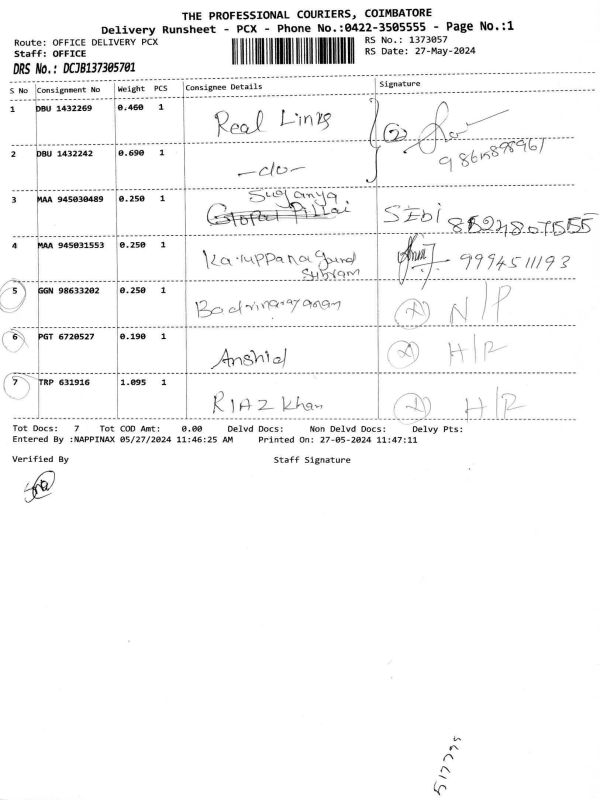 THE PROFESSIONAL COURIERS, COIMBATORE
Delivery Runsheet - PCX - Phone No.:0422-3505555 - Page No.:1
Route: OFFICE DELIVERY PCX
RS No.: 1373057
Staff: OFFICE
RS Date: 27-May-2024
DRS No.: DCJB137305701
S No Consignment No Weight PCS Consignee Details Signature
1 DBU 1432269 0.460 1 Real Links
2
9865898961
2 DBU 1432242 0.690 1 -do-
3 MAA 945030489 0.250 1 Suganya
Gopal Pillai Sibi
4 MAA 945031553 0.250 1 9994511193
5 GGN 98633202 0.250 1 Badrinarayanan N/P
6 PGT 6720527 0.190 1 Anshid H/R
7 TRP 631916 1.095 1 RIAZ Khan H/R
Tot Docs: 7 Tot COD Amt: 0.00 Delvd Docs: Non Delvd Docs: Delvy Pts:
Entered By :NAPPINAX 05/27/2024 11:46:25 AM Printed On: 27-05-2024 11:47:11
Verified By Staff Signature